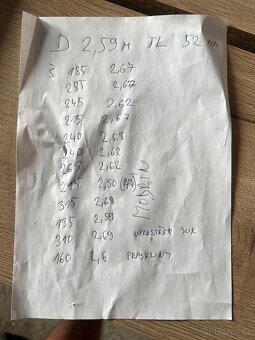 D 2,59 M TL 52 mm
Š 185 2,67
285 2,67
245 2,62
215 2,67
240 2,68
240 2,62
265 2,62
215 2,50
315 2,68
195 2,59
310 2,69 UPROSTŘED SUK
160 2,6 PRASKLINY
MODŘÍN